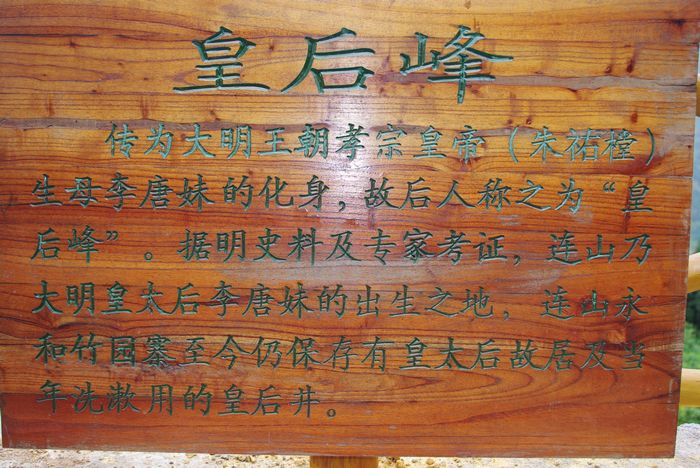 皇后峰
传为大明王朝孝宗皇帝（朱祐樘）
生母李唐妹的化身，故后人称之为“皇
后峰”。据明史料及专家考证，连山乃
大明皇太后李唐妹的出生之地，连山永
和竹园寨至今仍保存有皇太后故居及当
年洗漱用的皇后井。